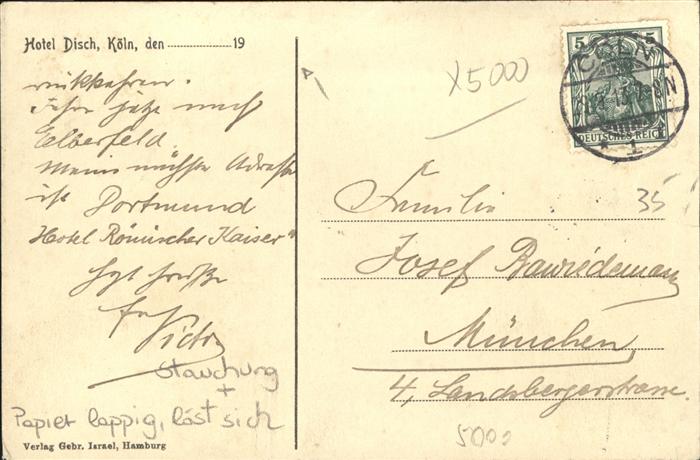 Hotel Disch, Köln, den 19
rückfahren.
Fahre jetzt nach
Elberfeld.
Meine nächste Adresse
ist Dortmund
Hotel Römischer Kaiser"
Hzl Grüße
Victor
Stauchung
+
Papier lappig, löst sich
Verlag Gebr. Israel, Hamburg
X5000
5 5
CÖLN
8-9N
* 1
DEUTSCHES REICH
35
Familie
Josef
München
4, Landsbergerstrasse.
5000